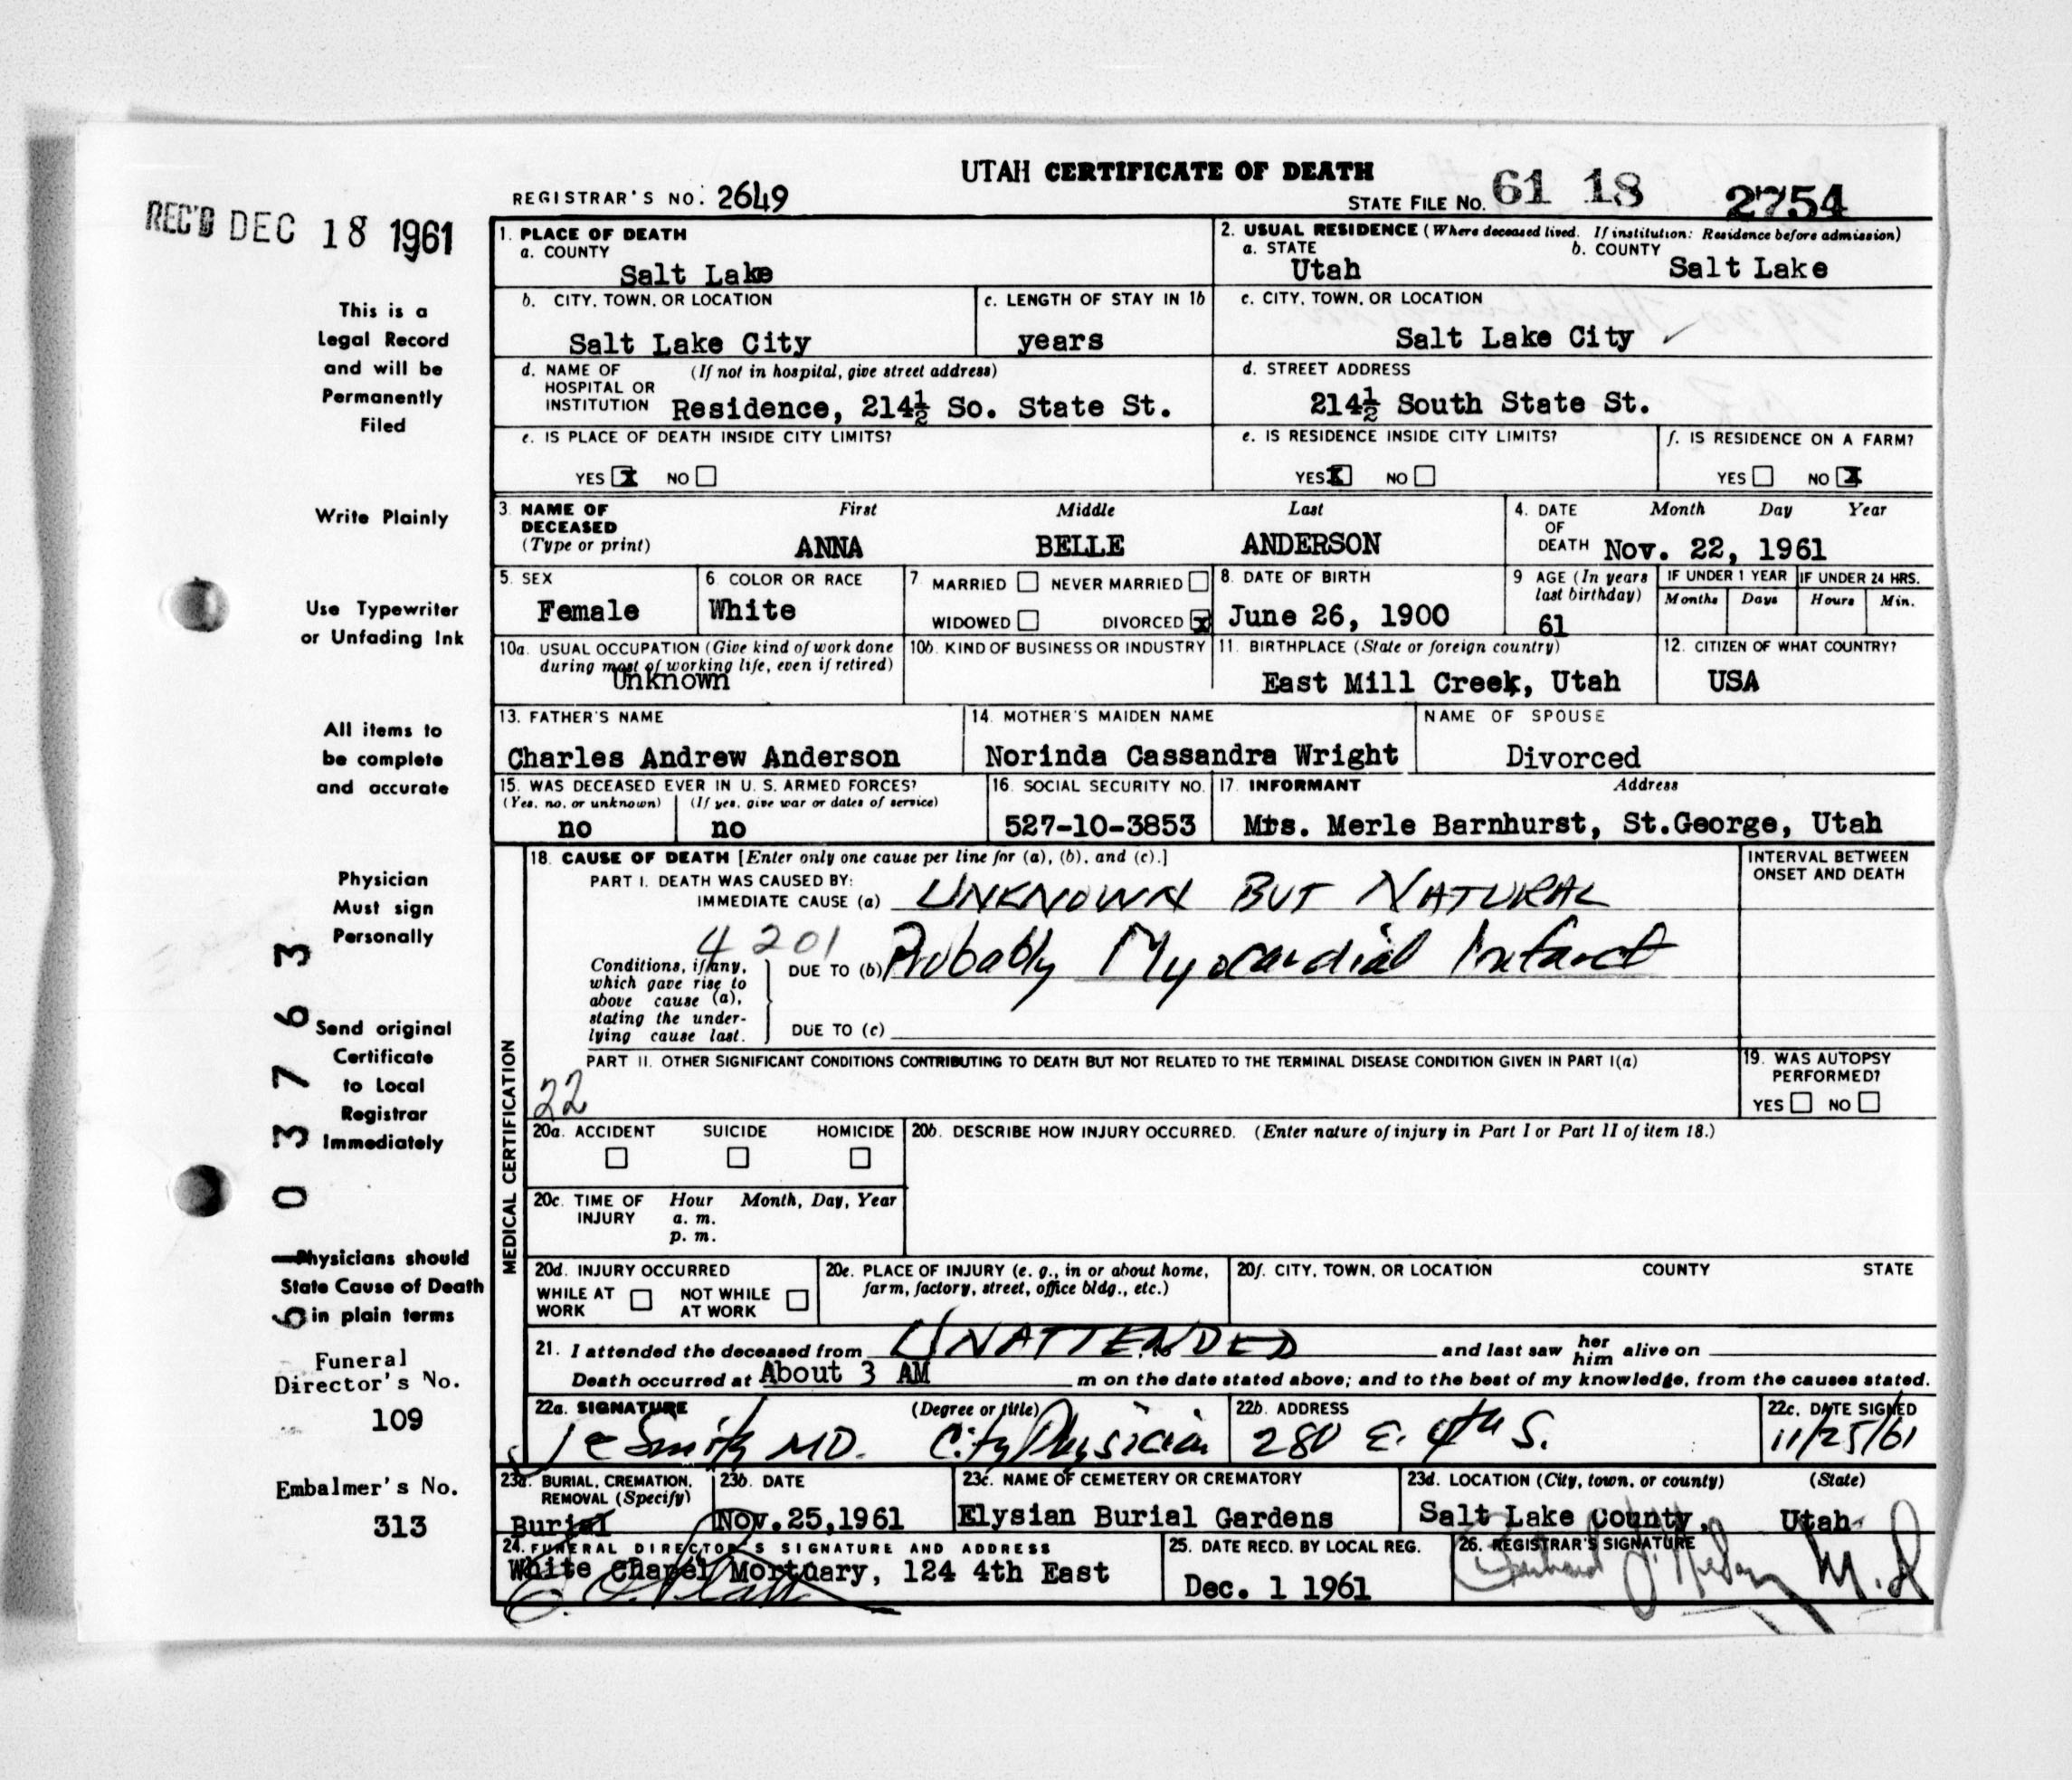 UTAH CERTIFICATE OF DEATH
REGISTRAR'S NO. 2649
STATE FILE NO. 61 18 2754
REC'D DEC 18 1961
This is a
Legal Record
and will be
Permanently
Filed
Write Plainly
Use Typewriter
or Unfading Ink
All items to
be complete
and accurate
Physician
Must sign
Personally
Send original
Certificate
to Local
Registrar
Immediately
Physicians should
State Cause of Death
in plain terms
Funeral
Director's No.
109
Embalmer's No.
313
6 1 0 3 7 6 3
1. PLACE OF DEATH
a. COUNTY
Salt Lake
2. USUAL RESIDENCE (Where deceased lived. If institution: Residence before admission)
a. STATE b. COUNTY
Utah Salt Lake
b. CITY, TOWN, OR LOCATION
Salt Lake City
c. LENGTH OF STAY IN 1b
years
c. CITY, TOWN, OR LOCATION
Salt Lake City ✓
d. NAME OF (If not in hospital, give street address)
HOSPITAL OR
INSTITUTION Residence, 214½ So. State St.
d. STREET ADDRESS
214½ South State St.
e. IS PLACE OF DEATH INSIDE CITY LIMITS?
YES ☒ NO ☐
e. IS RESIDENCE INSIDE CITY LIMITS?
YES ☒ NO ☐
f. IS RESIDENCE ON A FARM?
YES ☐ NO ☒
3. NAME OF First Middle Last
DECEASED
(Type or print) ANNA BELLE ANDERSON
4. DATE Month Day Year
OF
DEATH Nov. 22, 1961
5. SEX
Female
6. COLOR OR RACE
White
7. MARRIED ☐ NEVER MARRIED ☐
WIDOWED ☐ DIVORCED ☒
8. DATE OF BIRTH
June 26, 1900
9 AGE (In years
last birthday)
61
IF UNDER 1 YEAR IF UNDER 24 HRS.
Months Days Hours Min.
10a. USUAL OCCUPATION (Give kind of work done
during most of working life, even if retired)
Unknown
10b. KIND OF BUSINESS OR INDUSTRY
11. BIRTHPLACE (State or foreign country)
East Mill Creek, Utah
12. CITIZEN OF WHAT COUNTRY?
USA
13. FATHER'S NAME
Charles Andrew Anderson
14. MOTHER'S MAIDEN NAME
Norinda Cassandra Wright
NAME OF SPOUSE
Divorced
15. WAS DECEASED EVER IN U. S. ARMED FORCES?
(Yes, no, or unknown) (If yes, give war or dates of service)
no no
16. SOCIAL SECURITY NO.
527-10-3853
17. INFORMANT Address
Mrs. Merle Barnhurst, St.George, Utah
MEDICAL CERTIFICATION
18. CAUSE OF DEATH [Enter only one cause per line for (a), (b), and (c).]
INTERVAL BETWEEN
ONSET AND DEATH
PART I. DEATH WAS CAUSED BY:
IMMEDIATE CAUSE (a) UNKNOWN BUT NATURAL
4201
Conditions, if any,
which gave rise to
above cause (a),
stating the under-
lying cause last.
DUE TO (b) Probably Myocardial Infarct
DUE TO (c)
PART II. OTHER SIGNIFICANT CONDITIONS CONTRIBUTING TO DEATH BUT NOT RELATED TO THE TERMINAL DISEASE CONDITION GIVEN IN PART I(a)
22
19. WAS AUTOPSY
PERFORMED?
YES ☐ NO ☐
20a. ACCIDENT SUICIDE HOMICIDE
☐ ☐ ☐
20b. DESCRIBE HOW INJURY OCCURRED. (Enter nature of injury in Part I or Part II of item 18.)
20c. TIME OF Hour Month, Day, Year
INJURY a. m.
p. m.
20d. INJURY OCCURRED
WHILE AT ☐ NOT WHILE ☐
WORK AT WORK
20e. PLACE OF INJURY (e. g., in or about home,
farm, factory, street, office bldg., etc.)
20f. CITY, TOWN, OR LOCATION COUNTY STATE
21. I attended the deceased from UNATTENDED and last saw her him alive on
Death occurred at About 3 AM m on the date stated above; and to the best of my knowledge, from the causes stated.
22a. SIGNATURE (Degree or title)
Smith MD. City Physician
22b. ADDRESS
280 E. 4th S.
22c. DATE SIGNED
11/25/61
23a. BURIAL, CREMATION,
REMOVAL (Specify)
Burial
23b. DATE
Nov.25,1961
23c. NAME OF CEMETERY OR CREMATORY
Elysian Burial Gardens
23d. LOCATION (City, town, or county) (State)
Salt Lake County, Utah
24. FUNERAL DIRECTOR'S SIGNATURE AND ADDRESS
White Chapel Mortuary, 124 4th East
25. DATE RECD. BY LOCAL REG.
Dec. 1 1961
26. REGISTRAR'S SIGNATURE
M.D.